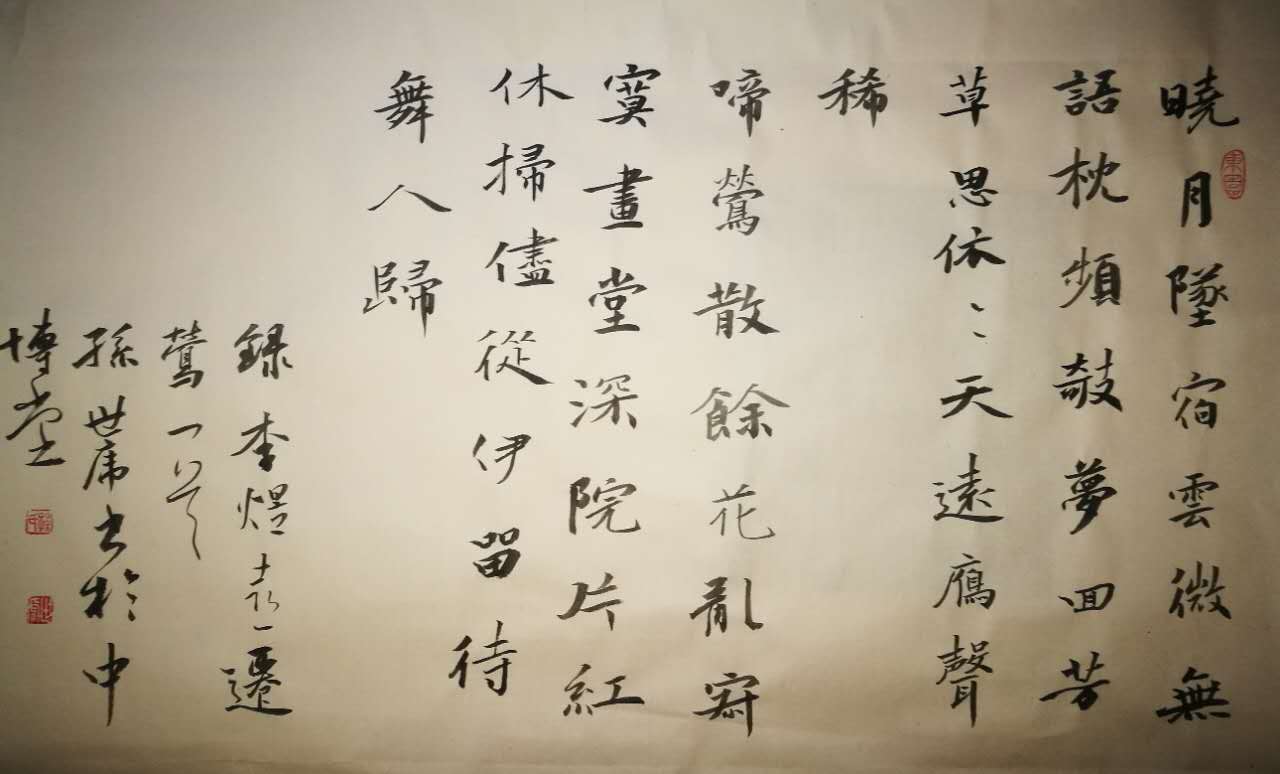 曉月墜宿雲微無
語枕頻敧夢回芳
草思依〻天遠鴈聲
稀
啼鶯散餘花亂寂
寞畫堂深院片紅
休掃儘從伊留待
舞人歸
錄李煜喜遷
鶯一首
孫世席書於中
博堂